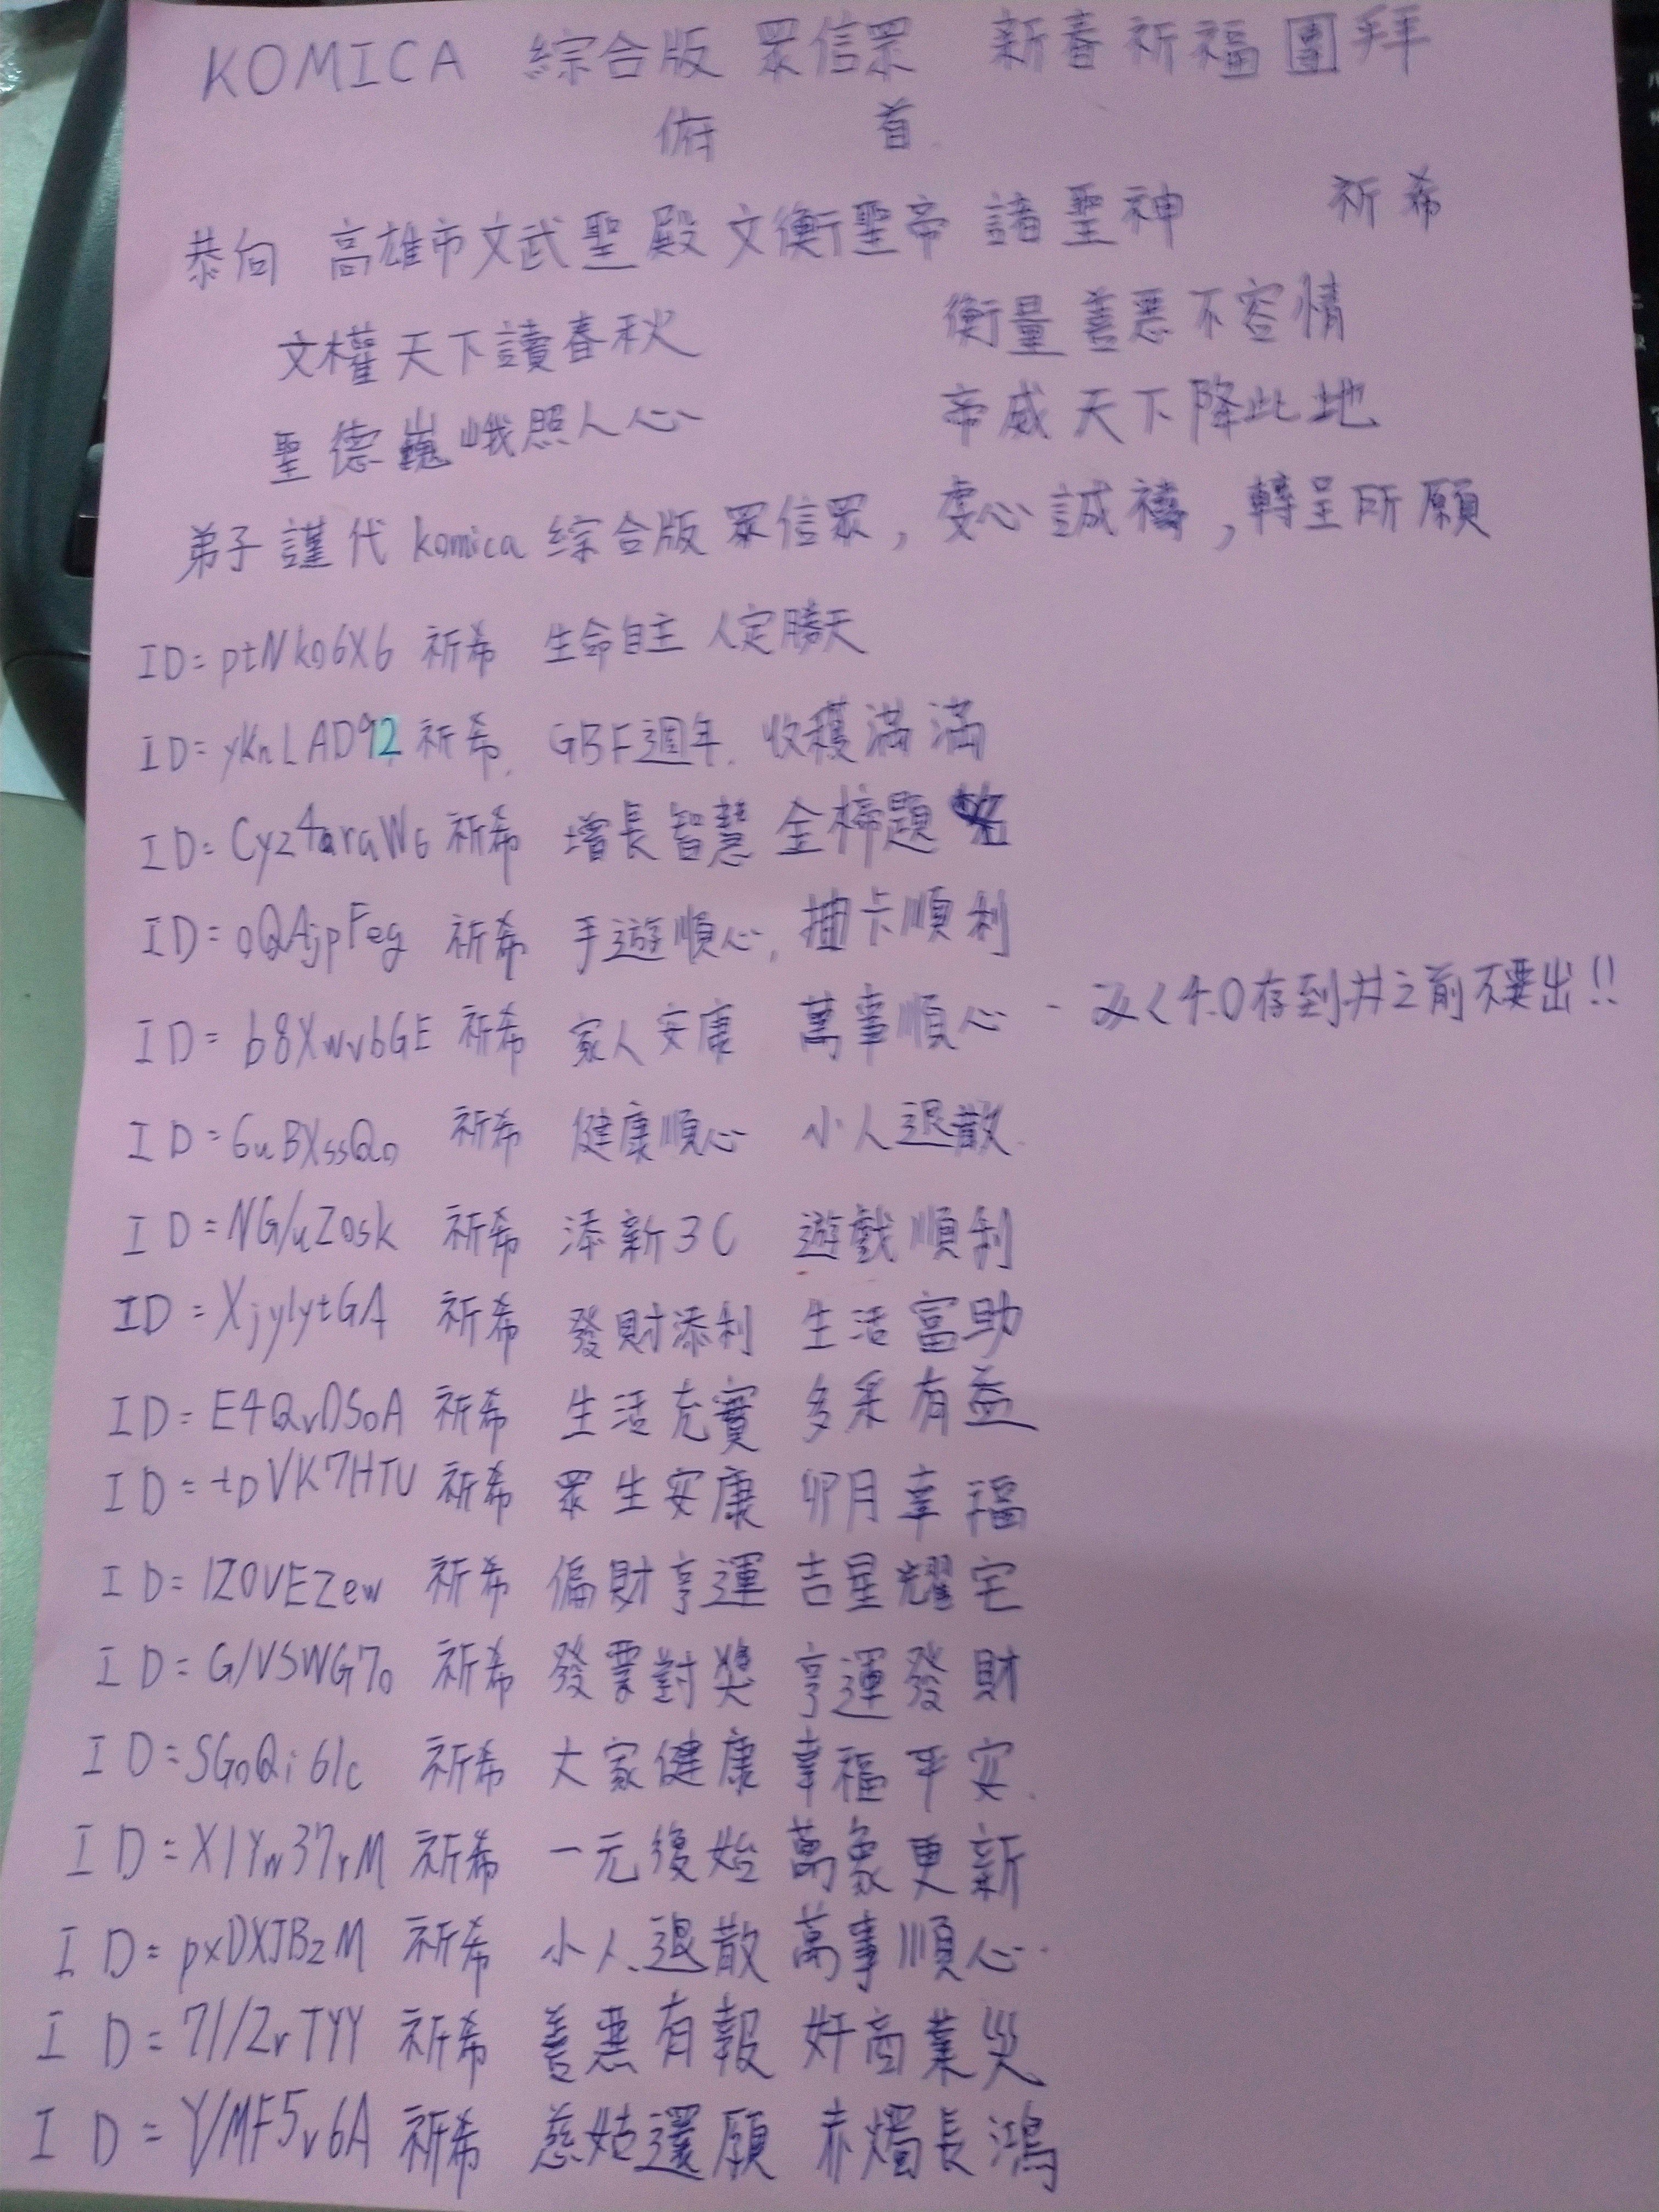 KOMICA 綜合版 眾信眾 新春祈福團拜
俯 首
恭向 高雄市文武聖殿文衡聖帝 諸聖神 祈希
文權天下讀春秋 衡量善惡不容情
聖德巍峨照人心 帝威天下降此地
弟子謹代 komica 綜合版眾信眾, 虔心誠禱, 轉呈所願
ID=ptNko6X6 祈希 生命自主 人定勝天
ID=yKnLAD92 祈希. GBF週年. 收穫滿滿
ID=Cyz4araW6 祈希 增長智慧 金榜題名
ID=oQAjpFeg 祈希 手遊順心, 抽卡順利
ID=b8XwvbGE 祈希 家人安康 萬事順心 - みく4.0存到井之前不要出!!
ID=6uBXssQo 祈希 健康順心 小人退散.
ID=NG/uZosk 祈希 添新3C 遊戲順利
ID=XjylytGA 祈希 發財添利 生活富助
ID=E4QvDSoA 祈希 生活充實 多采有益
ID=tDVK7HTU 祈希 眾生安康 卯月幸福
ID=1Z0VEZew 祈希 偏財亨運 吉星耀宅
ID=G/VSWG7o 祈希 發票對獎 亨運發財
ID=SGoQi61c 祈希 大家健康 幸福平安.
ID=X1Yw37rM 祈希 一元復始 萬象更新
ID=pxDXJBzM 祈希 小人退散 萬事順心.
ID=71/2rTYY 祈希 善惡有報 奸商業災
ID=Y/MF5v6A 祈希 慈姑還願 赤燭長鴻